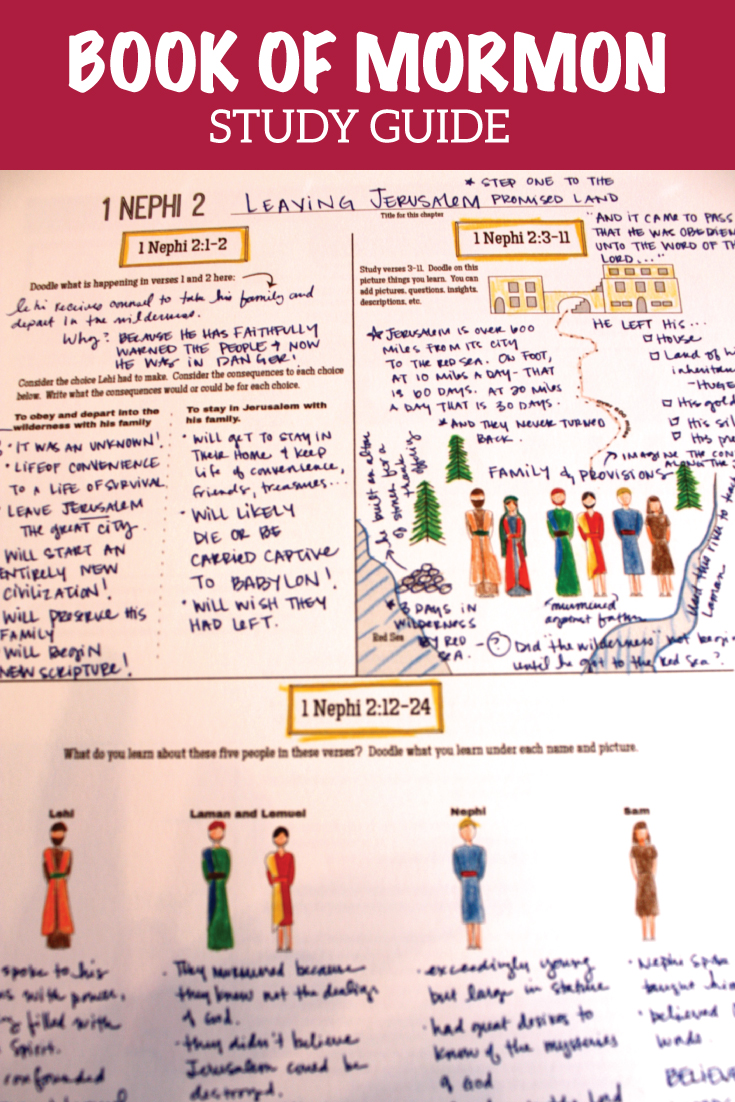 BOOK OF MORMON
STUDY GUIDE
1 NEPHI 2
LEAVING JERUSALEM
* STEP ONE TO THE
PROMISED LAND
Title for this chapter
1 Nephi 2:1-2
Doodle what is happening in verses 1 and 2 here:
Lehi receives counsel to take his family and
depart in the wilderness.
Why? BECAUSE HE HAS FAITHFULLY
WARNED THE PEOPLE & NOW
HE WAS IN DANGER!
Consider the choice Lehi had to make. Consider the consequences to each choice
below. Write what the consequences would or could be for each choice.
To obey and depart into the
wilderness with his family
• IT WAS AN UNKNOWN!
• LIFE OF CONVENIENCE
TO A LIFE OF SURVIVAL
LEAVE JERUSALEM
THE GREAT CITY.
WILL START AN
ENTIRELY NEW
CIVILIZATION!
WILL PRESERVE HIS
FAMILY
WILL BEGIN
NEW SCRIPTURE!
To stay in Jerusalem with
his family.
• WILL GET TO STAY IN
THEIR HOME & KEEP
LIFE OF CONVENIENCE,
FRIENDS, TREASURES...
• WILL LIKELY
DIE OR BE
CARRIED CAPTIVE
TO BABYLON!
• WILL WISH THEY
HAD LEFT.
1 Nephi 2:3-11
"AND IT CAME TO PASS
THAT HE WAS
UNTO THE WORD OF
LORD..."
Study verses 3-11. Doodle on this
picture things you learn. You can
add pictures, questions, insights,
descriptions, etc.
* JERUSALEM IS OVER 600
MILES FROM ITS CITY
TO THE RED SEA. ON FOOT,
AT 10 MILES A DAY - THAT
IS 60 DAYS. AT 20 MILES
A DAY THAT IS 30 DAYS.
* AND THEY NEVER TURNED
BACK.
HE LEFT HIS...
House
Land of
His
His
His
IMAGINE THE
ALONG THE
FAMILY & PROVISIONS
he built an altar
of stones for a
thank
offering
* 3 DAYS IN
WILDERNESS
BY RED
SEA.
Red Sea
"murmured
against father
? Did "the wilderness" not begin
until he got to the Red Sea?
this river to
Laman
1 Nephi 2:12-24
What do you learn about these five people in these verses? Doodle what you learn under each name and picture.
Lehi
spoke to his
with power,
filled with
Spirit.
confounded
Laman and Lemuel
• They murmured because
they knew not the dealings
of God.
• they didn't believe
Jerusalem could be
destroyed.
Nephi
• exceedingly young
but large in stature
• had great desires to
know of the mysteries
of God
Sam
• Nephi
taught
• believed
words.